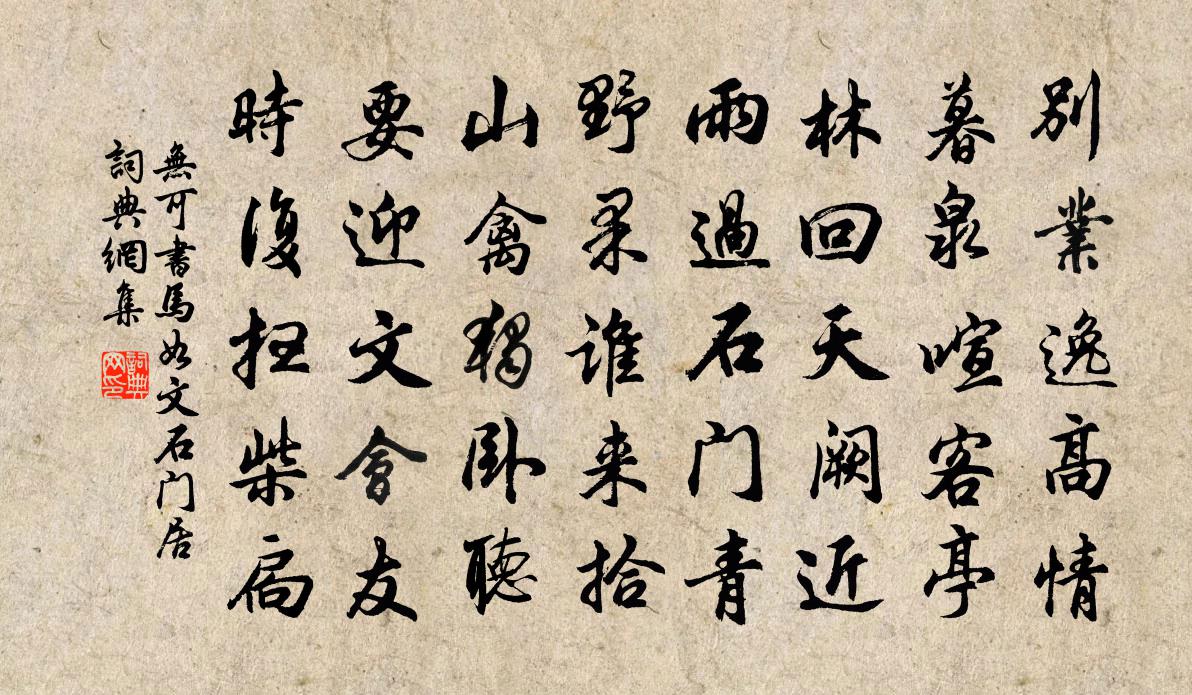 別業逸高情
暮泉喧客亭
林回天闕近
雨過石门青
野果誰来拾
山禽獨卧聽
要迎文會友
時復扫柴扃
無可書馬如文石门居
詞典網集
詞典网印